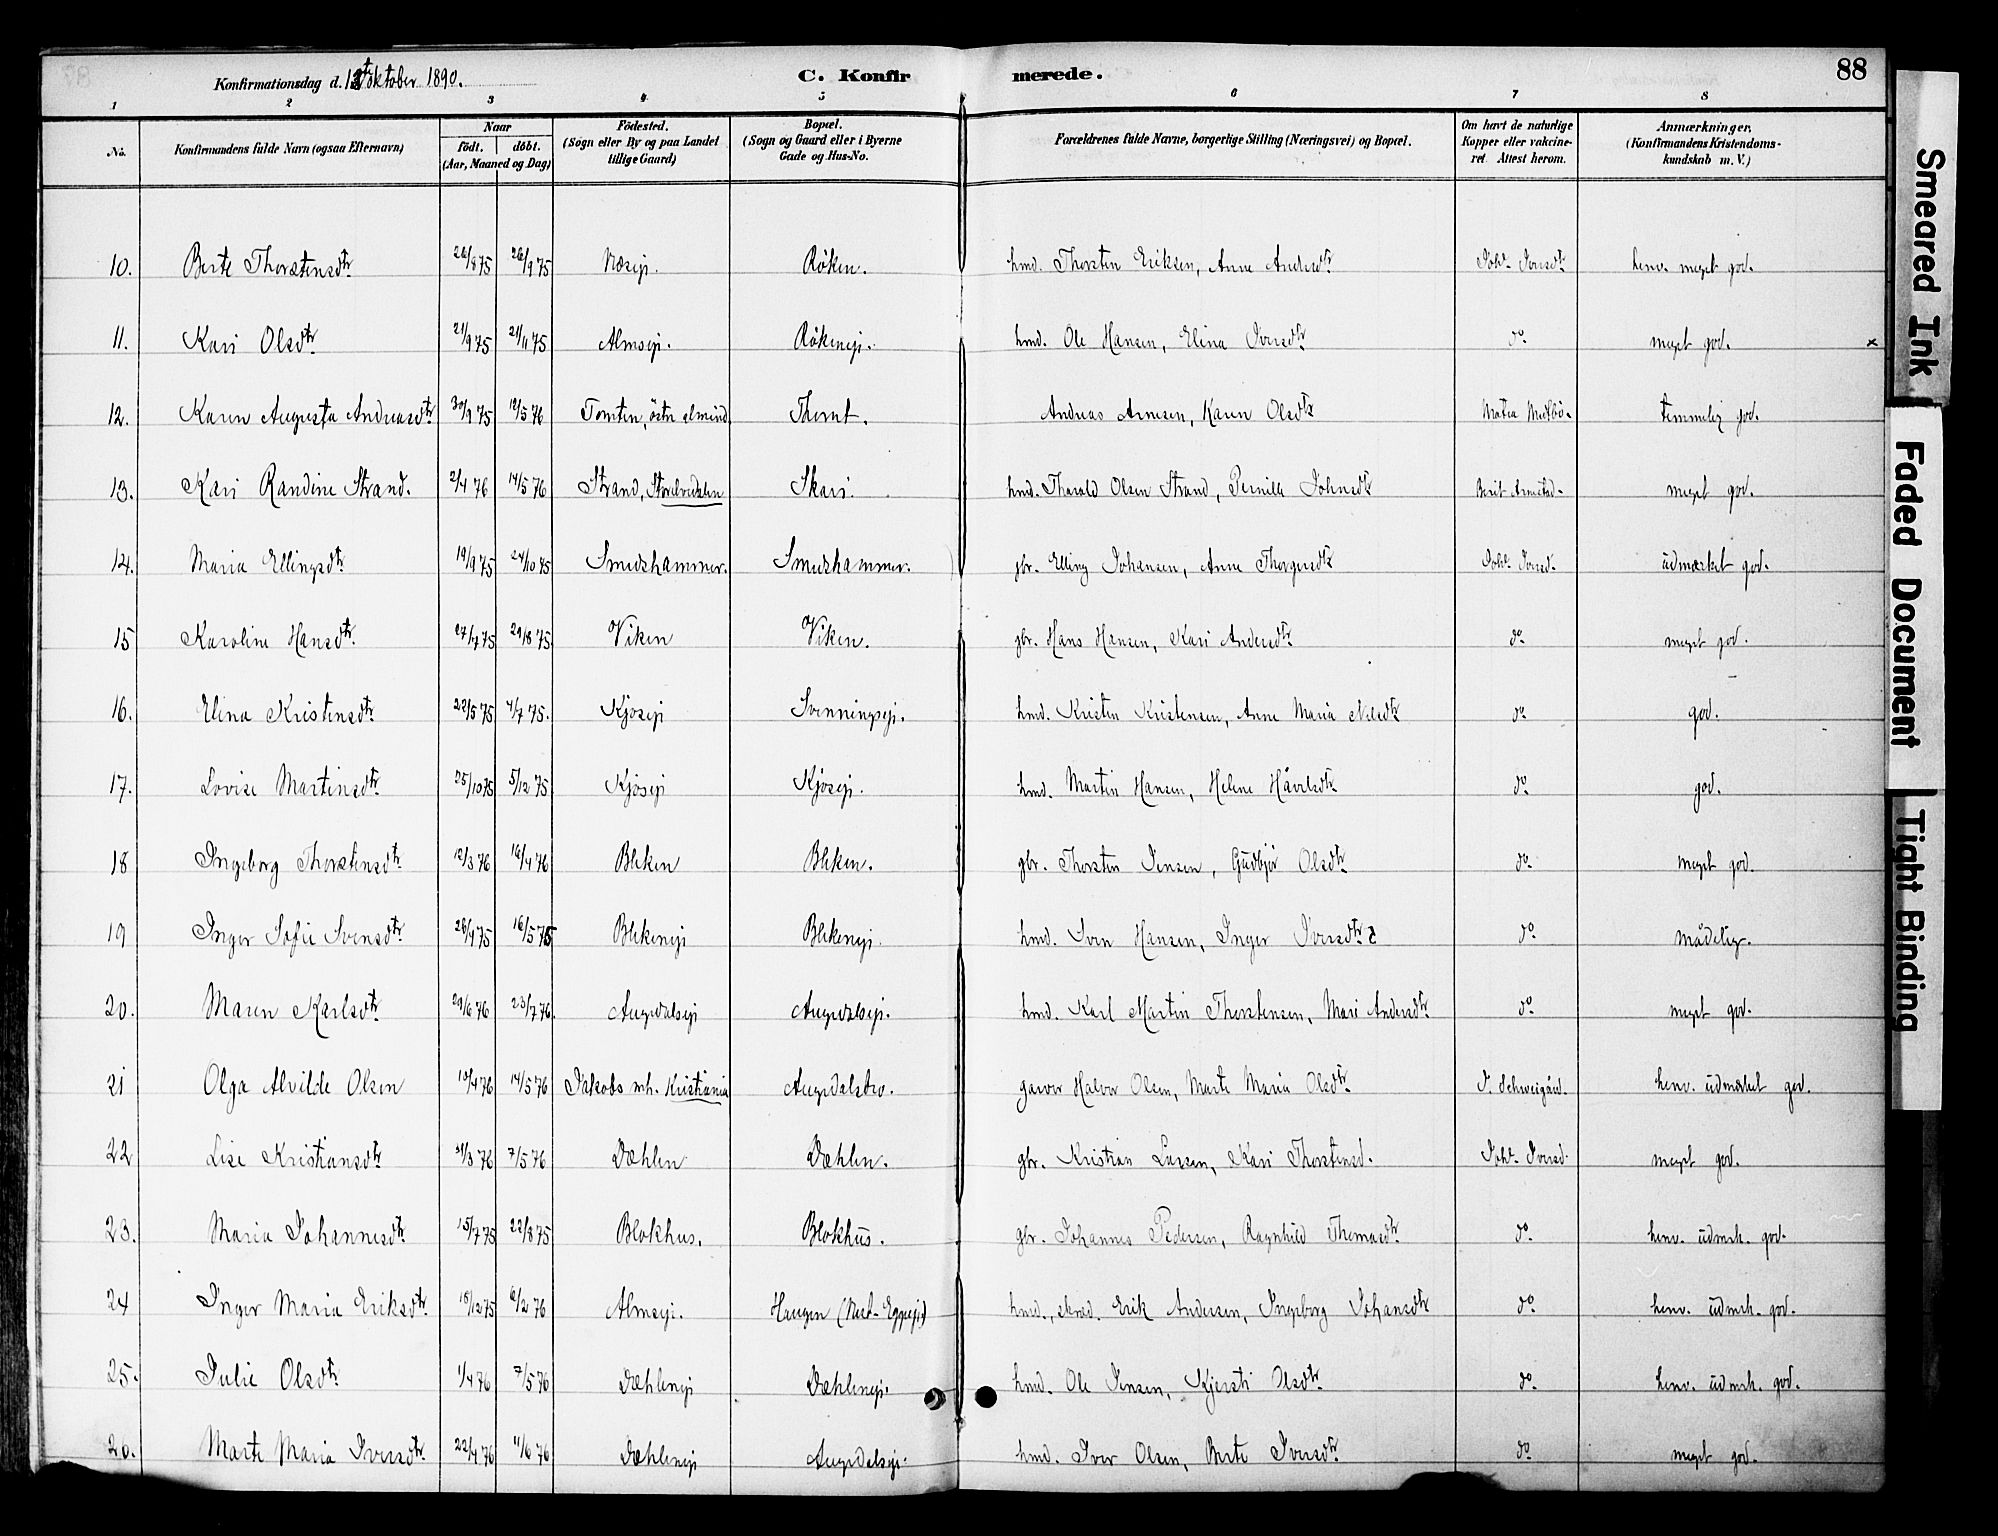 Konfirmationsdag d. 12 Oktober 1890.
C. Konfirmerede.
88
1 2 3 4 5 6 7 8
No. Konfirmandens fulde Navn (ogsaa Efternavn) Naar født. døbt. (Aar, Maaned og Dag) Fødested. (Sogn eller By og paa Landet tillige Gaard) Bopæl. (Sogn og Gaard eller i Byerne Gade og Hus-No. Forældrenes fulde Navne, borgerlige Stilling (Næringsvei) og Bopæl. Om havt de naturlige Kopper eller vakcineret. Attest herom. Anmærkninger. (Konfirmandens Kristendomskundskab m. V.)
10. Berte Thorstensdtr 26/8 75 26/9 75 Næseji. Røken. hmd. Thorsten Eriksen, Anne Andersdtr Johs. Iversdtr henv. meget god.
11. Kari Olsdtr. 21/9 75 21/11 75 Almseji. Røkeneji. hmd. Ole Hansen, Elina Iversdtr do meget god. x
12. Karen Augusta Andreasdtr 30/9 75 12/5 76 Tomten, östr almind. Thomt. Andreas Arnesen, Karen Olsdtr temmelig god.
13. Kari Randine Strand. 2/4 76 14/5 76 Strand, Storelvedalen Skari. hmd. Tharald Olsen Strand, Pernille Johnsdtr Berit Armstad. meget god.
14. Maria Ellingsdtr. 19/9 75 24/10 75 Smedshammer. Smedshammer. gbr. Elling Johansen, Anne Thorgersdtr Johs. Iversd. üdmærket god.
15 Karoline Hansdtr. 27/7 75 29/8 75. Viken Viken. gbr. Hans Hansen, Kari Andersdtr. do meget god.
16. Elina Kristensdtr. 22/5 75 4/7 75. Kjoseji Svenningseji. hmd. Kristen Kristensen, Anne Maria Nilsdtr do god.
17. Lovise Martinsdtr 25/10 75 5/12 75 Kjøseji Kjøseji. hmd. Martin Hansen, Helene Håvelsdtr. do god.
18 Ingeborg Thorstensdtr 12/3 76 16/4 76 Bleken Bleken. gbr. Thorsten Jensen, Gudbjør Olsdtr do meget god.
19 Inger Sofie Svensdtr. 26/4 75 16/5 75 Blekeneji Blekeneji. hmd. Sven Hansen, Inger Iversdtr do mådelig.
20. Maren Karlsdtr. 29/6 76 23/7 76 Augedalseji Augedalseji. hmd. Karl Martin Thorstensen, Mari Andersdtr do meget god.
21 Olga Alvilde Olsen 10/4 76 14/5 76 Jakobs mh. Kristiania Augedalsbro. garver Halvor Olsen, Marte Maria Olsdtr. Schweigård. henv. üdmærket god.
22 Lise Kristiansdtr 31/3 76 7/5 76 Dæhlen Dæhlen. gbr. Kristian Larsen, Kari Thorstensd. Johs. Iversd. meget god.
23. Maria Johannesdtr. 15/7 75 22/8 75 Blokhus. Blokhüs. gbr. Johannes Pedersen, Ragnhild Thomasdtr do henv. üdmrk. god.
24 Inger Maria Eriksdtr. 18/12 75 6/2 76 Almseji. Haugen (Nest-Eggeji) hmd., skræd. Erik Andersen, Ingeborg Johansdtr do henv. üdmrk. god.
25. Julie Olsdtr. 1/4 76 7/5 76 Dæhleneji Dæhleneji. hmd. Ole Jensen, Kjersti Olsdtr. do henv. üdmrk. god.
26. Marte Maria Iversdtr 22/4 76 11/6 76 Dæhleneji Augedalseji. hmd. Iver Olsen, Berte Iversdtr do meget god.
Smeared Ink
Faded Document
Tight Binding